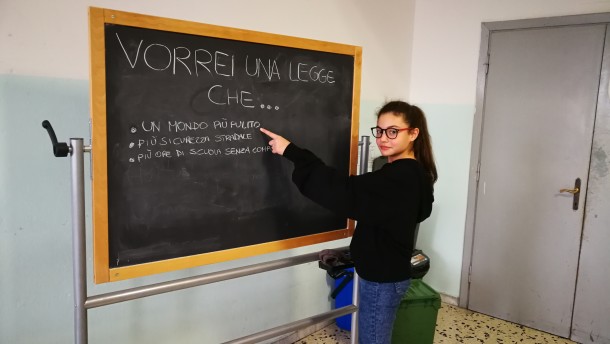 VORREI UNA LEGGE
CHE...
• UN MONDO PIÙ PULITO
• PIÙ SICUREZZA STRADALE
• PIÙ ORE DI SCUOLA SENZA